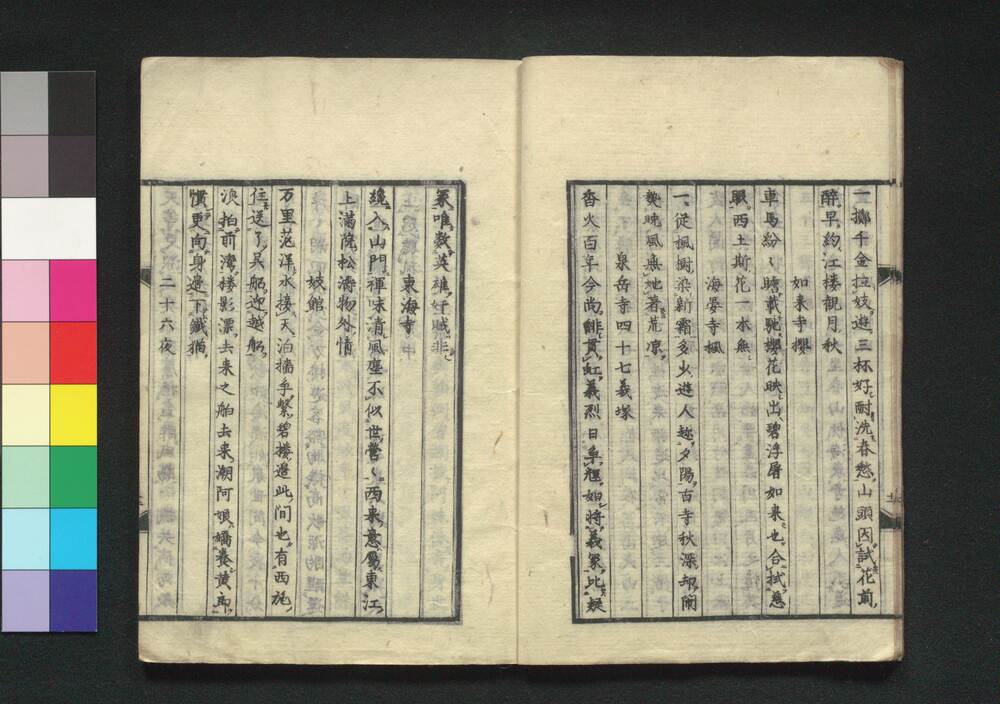 一擲千金拉妓遊三杯好耐洗春愁山頭因試花前
醉早約江楼観月秋
如来寺櫻
車馬紛〻聴載馳櫻花映出碧浮屠如来也合拭慈
眼西土斯花一木無
海晏寺楓
一従楓樹染新霜多少遊人趁夕陽古寺秋深却閙
熱晩風無地著荒凉
泉岳寺四十七義塚
香火百年今尚絶貫虹義烈日争輝如将義冢比疑
冢唯数英雄奸賊非
東海寺
纔入山門禅味清風塵不似世営〻西来意属東江
上満院松濤物外情
妓館
万里范洋水接天泊檣多繋碧楼邉此間也有西施
住送了呉船迎越船
浪拍前湾楼影漂去来之舶去来潮阿娘嬌養黄
慣更向身邉下鑯猫
二十六夜